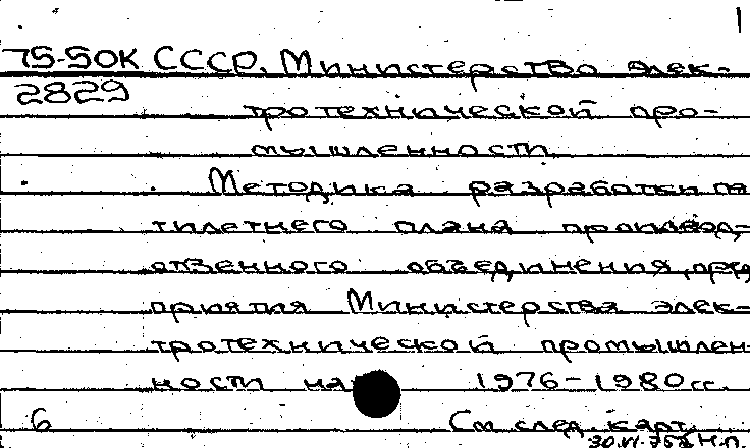 1
75-50К СССР. Министерство элек-
2829
тротехнической про-
мышленности.
Методика разработки пя
тилетнего плана производ-
ственного объединения, пред
приятия Министерства элек-
тротехнической промышлен-
ности на 1976-1980гг.
6 См след. карт.
30.VI.75г Н.П.